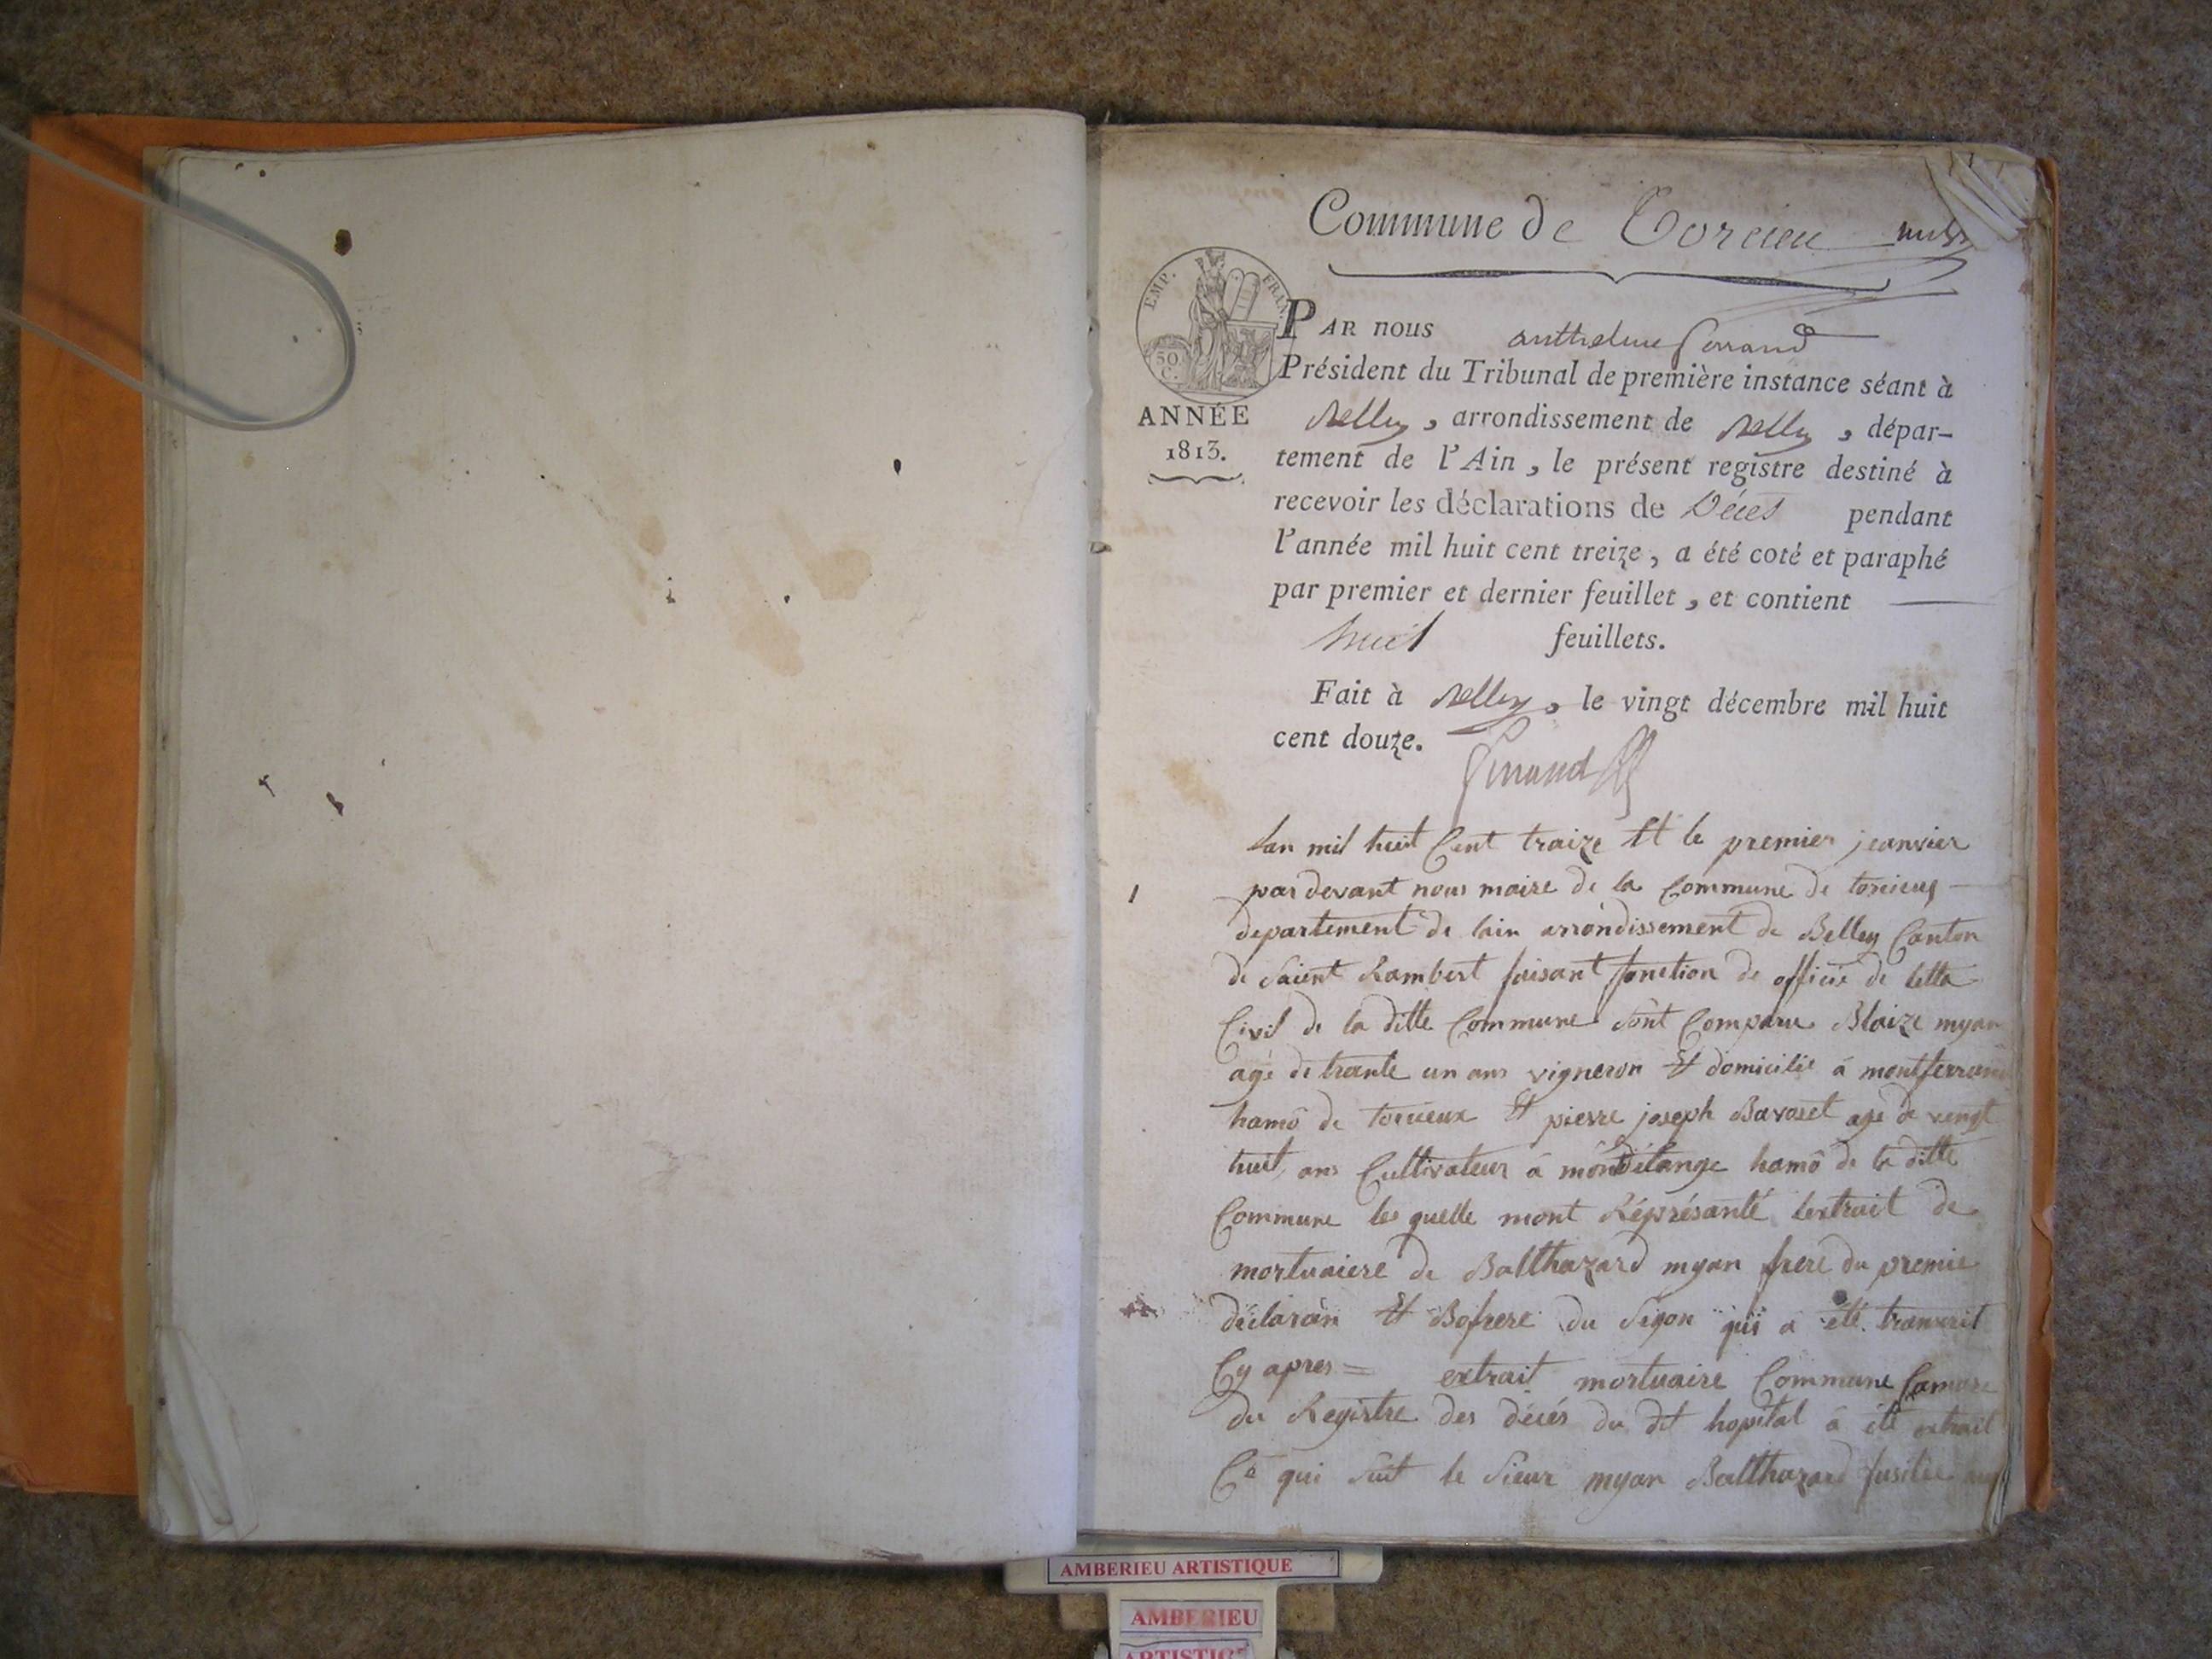 Commune de Torcieu
EMP. FRAN.
50
C.
ANNÉE
1813.
PAR nous anthelme
Président du Tribunal de première instance séant à
Belley, arrondissement de Belley, dépar-
tement de l'Ain, le présent registre destiné à
recevoir les déclarations de Décès pendant
l'année mil huit cent treize, a été coté et paraphé
par premier et dernier feuillet, et contient
huit feuillets.
Fait à Belley, le vingt décembre mil huit
cent douze.
1
Lan mil huit Cent traize Et le premier jeanvier
par devant nous maire de la Commune de torcieux
departement de lain arrondissement de Belley Canton
de Saient Rambert faisant fonction de officié de letta
Civil de la ditte Commune Sont Comparu Blaize myan
agé de trante un ans vigneron Et domicilié á montferrand
hamô de torcieux Et pierre joseph Bavozet agé de vengt
huit ans Cultivateur á montdélange hamô de la ditte
Commune les quelle mont Réprésanté lextrait de
mortuaiere de Balthazard myan frere du premie
déclaran Et Bofrere du Segon qui a été transcrit
Cy apres = extrait mortuaire Commune
du Registre des décés du dit hopital á été extrait
Cé qui Suit le Sieur myan Balthazard fusilié
AMBERIEU ARTISTIQUE
AMBERIEU